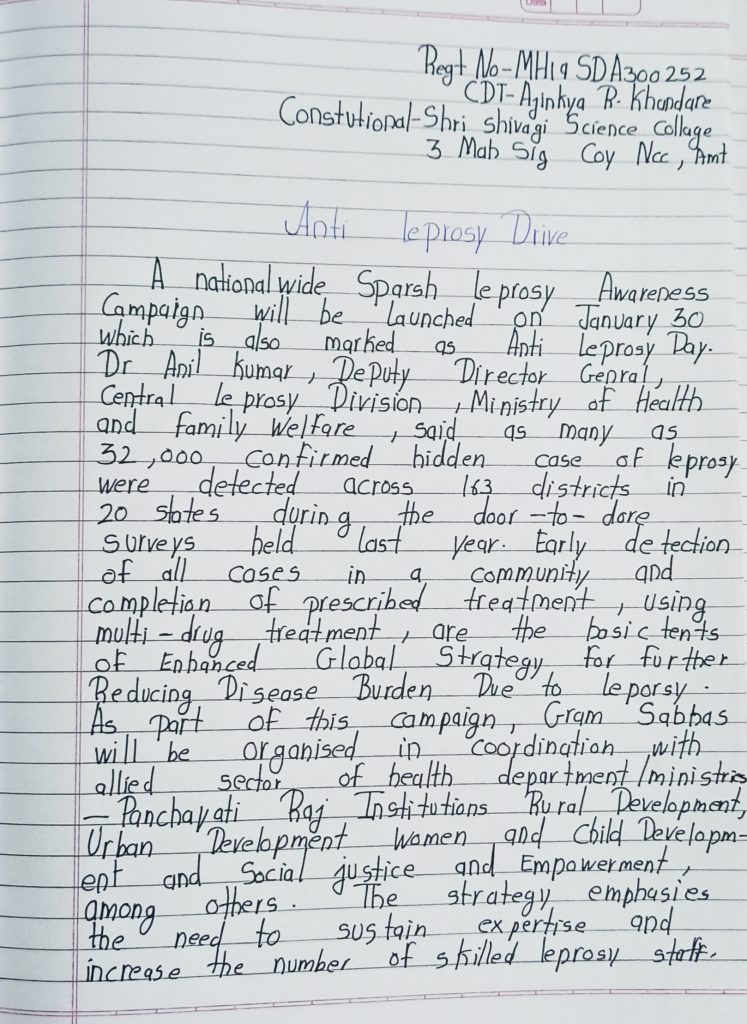 Regt No-MH19SDA300252
CDT-Ajinkya R. Khandare
Constutional-Shri shivagi Science Collage
3 Mah Sig Coy Ncc, Amt
Anti leprosy Drive
A nationalwide Sparsh leprosy Awareness
Campaign will be launched on January 30
which is also marked as Anti Leprosy Day.
Dr Anil Kumar, Deputy Director Genral,
Central leprosy Division, Ministry of Health
and family welfare, said as many as
32,000 confirmed hidden case of leprosy
were detected across 163 districts in
20 states during the door-to-dore
surveys held last year. Early detection
of all cases in a community and
completion of prescribed treatment, using
multi-drug treatment, are the basic tents
of Enhanced Global Strategy for further
Reducing Disease Burden Due to leporsy.
As part of this campaign, Gram Sabbas
will be organised in coordination with
allied sector of health department/ministries
— Panchayati Raj Institutions Rural Development,
Urban Development women and Child Developm-
ent and Social justice and Empowerment,
among others. The strategy emphasies
the need to sustain expertise and
increase the number of skilled leprosy staff.